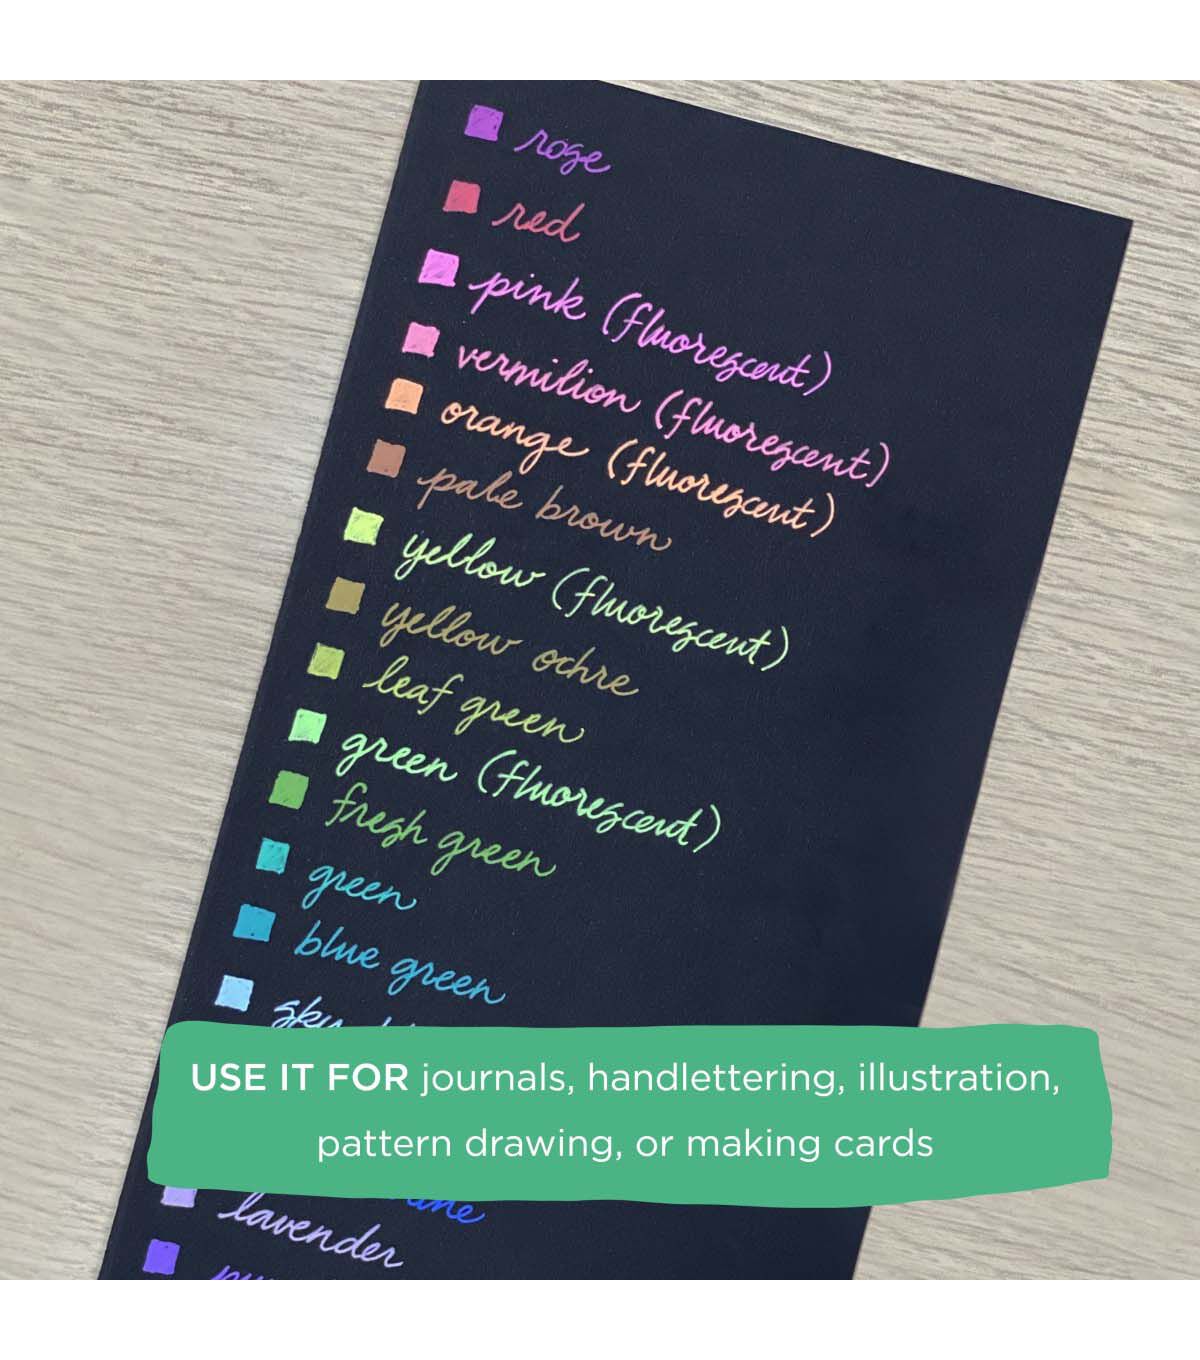 rose
red
pink (fluorescent)
vermilion (fluorescent)
orange (fluorescent)
pale brown
yellow (fluorescent)
yellow ochre
leaf green
green (fluorescent)
fresh green
green
blue green
sky
USE IT FOR journals, handlettering, illustration,
pattern drawing, or making cards
lavender